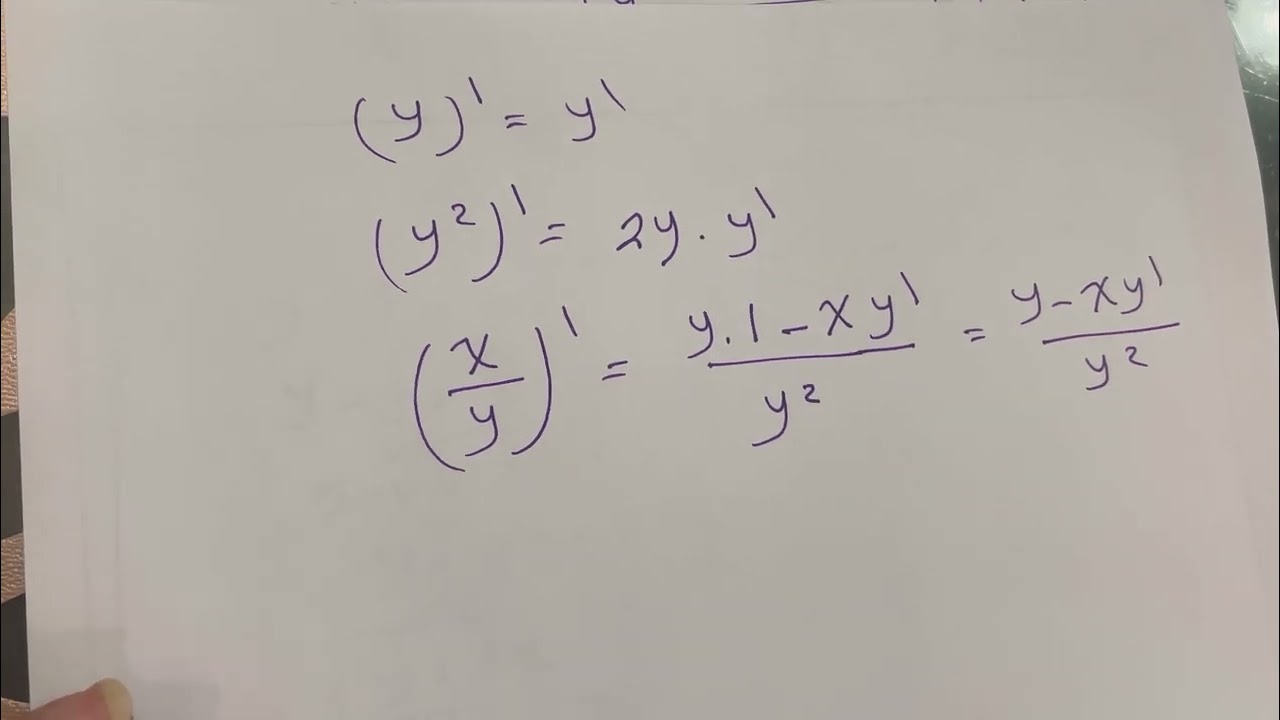 (y)' = y'
(y²)' = 2y · y'
(x/y)' = (y.1 - xy')/y² = (y - xy')/y²